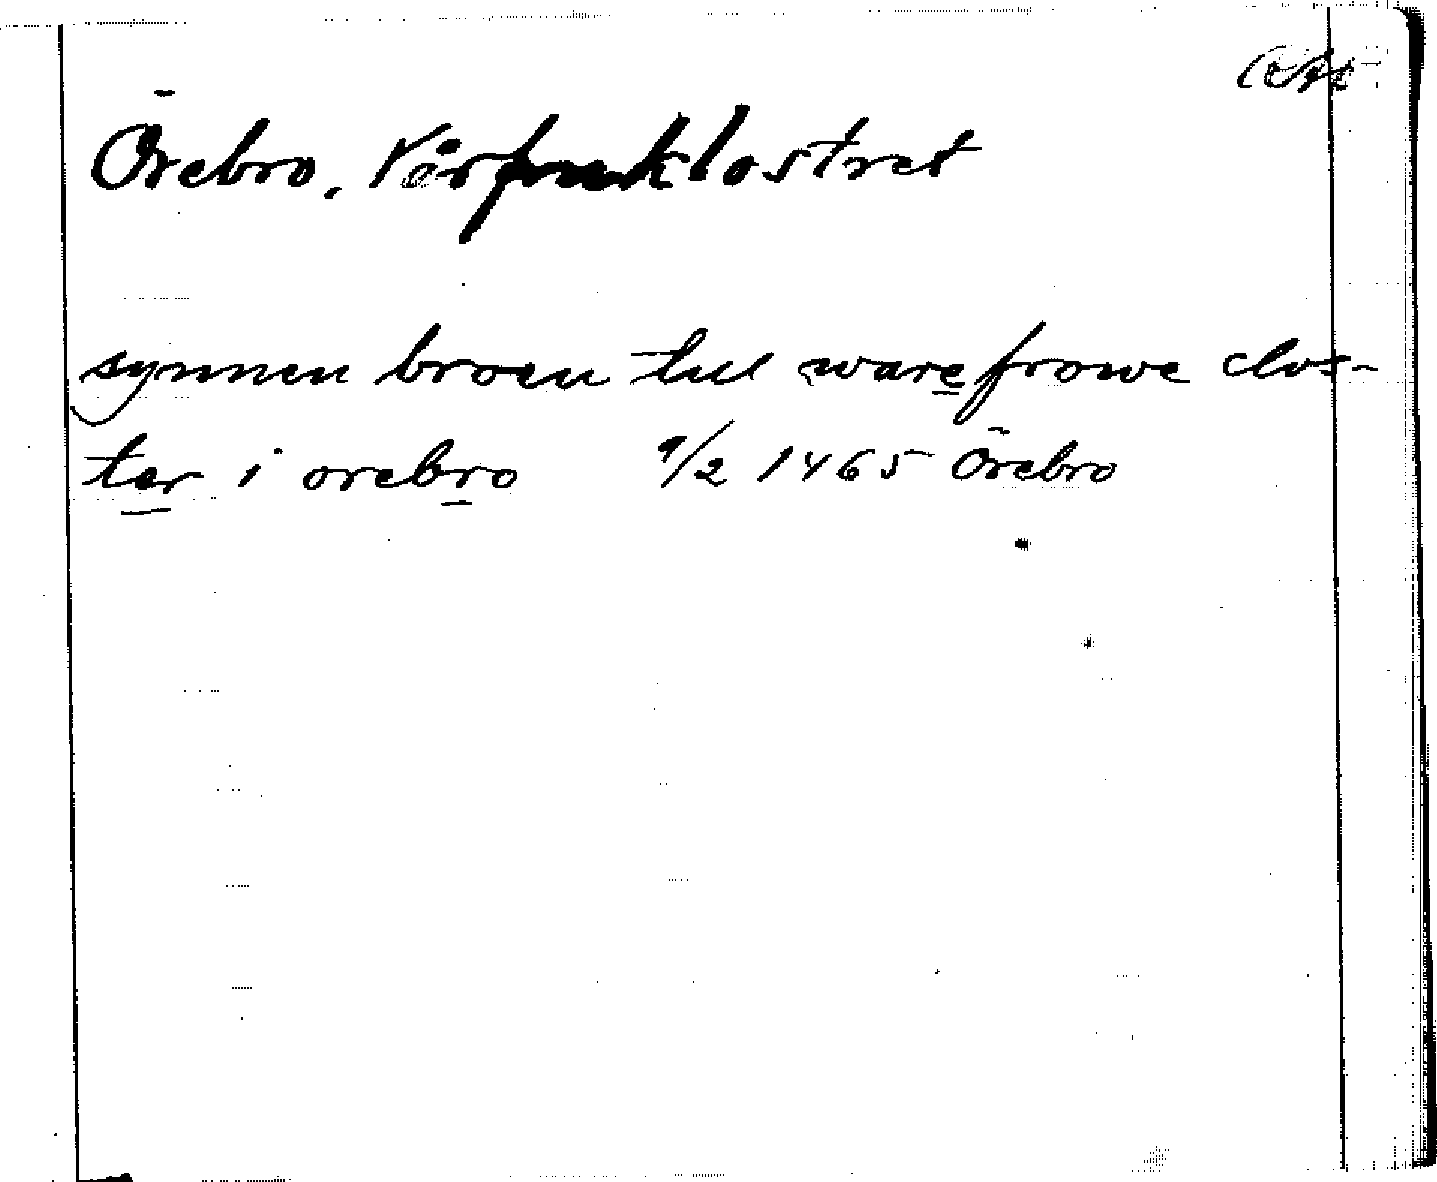 Örebro, Vårfruklostret
synnen broen till ware frowe clos-
ter i orebro 9/2 1465 Örebro